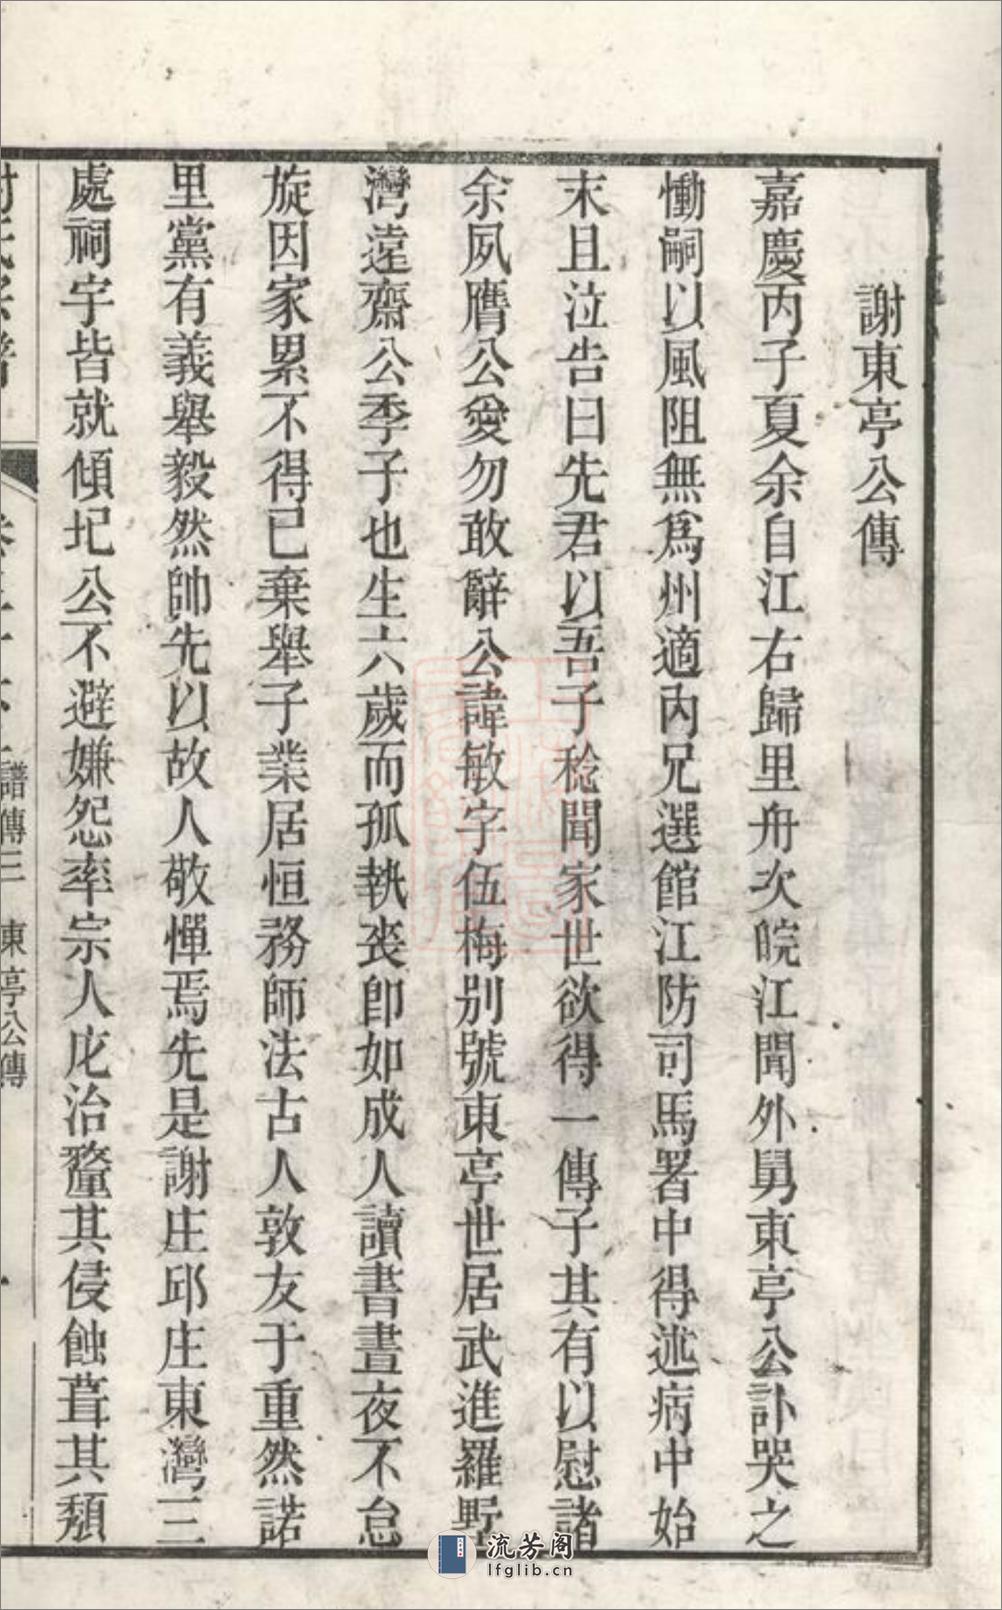 謝東亭公傳
嘉慶丙子夏余自江右歸里舟次皖江聞外舅東亭公訃哭之
慟嗣以風阻無爲州適內兄選館江防司馬署中得述病中始
末且泣告曰先君以吾子稔聞家世欲得一傳子其有以慰諸
余夙膺公愛勿敢辭公諱敏字伍梅別號東亭世居武進羅墅
灣遠齋公季子也生六歲而孤執喪卽如成人讀書晝夜不怠
旋因家累不得已棄舉子業居恒務師法古人敦友于重然諾
里黨有義舉毅然帥先以故人敬憚焉先是謝庄邱庄東灣三
處祠宇皆就傾圮公不避嫌怨率宗人庀治釐其侵蝕葺其頽
譜傳三 東亭公傳
流芳阁
lfglib.cn